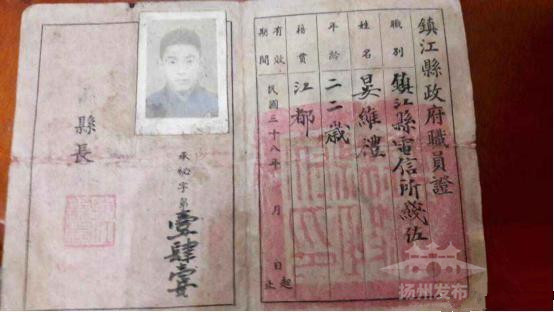 鎮江縣政府職員證
職別 鎮江縣電信所綫佐
姓名 晏維澧
年齡 二二歲
籍貫 江都
有效期間 民國三十八年 月 日起止
承秘字第壹肆壹
縣長
扬州发布